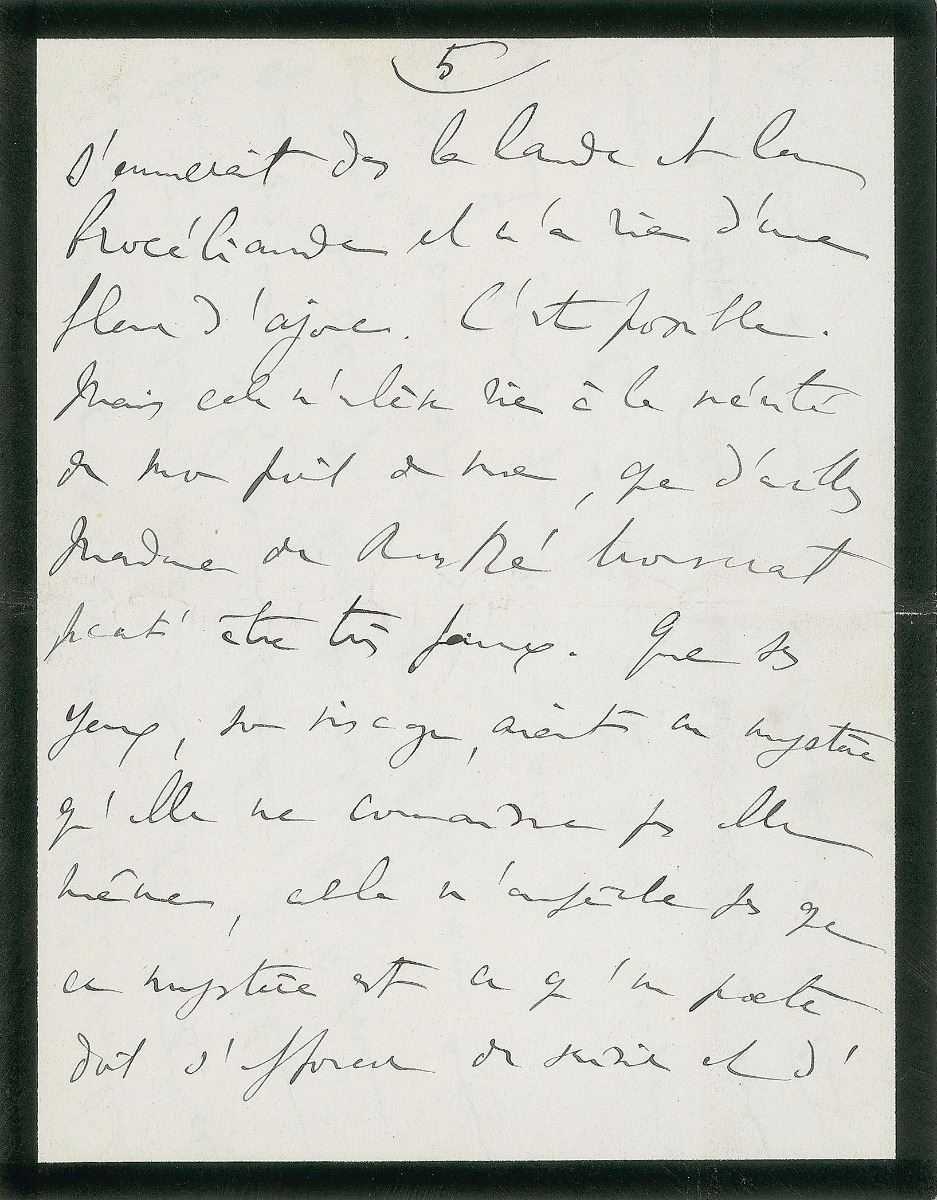 5
s'ennuierait dans la lande et la
Brocéliande et n'a rien d'une
fleur d'ajonc. C'est possible.
Mais cela n'enlève rien à la vérité
de mon point de vue, que d'ailleurs
Madame de trouverait
peut être très faux. Que ses
yeux, son visage, aient un mystère
qu'elle ne connaisse pas elle
même, cela n'empêche pas que
ce mystère est ce qu'un poète
doit s'efforcer de saisir et d'